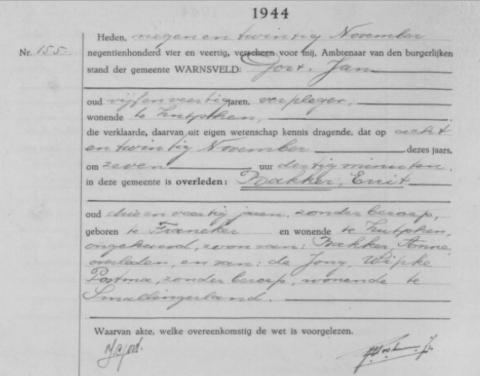 1944
Heden, negen en twintig November
Nr. 155. negentienhonderd vier en veertig, verscheen voor mij, Ambtenaar van den burgerlijken
stand der gemeente WARNSVELD: Jan
oud vijf en veertig jaren, verpleger,
wonende te Zutphen,
die verklaarde, daarvan uit eigen wetenschap kennis dragende, dat op acht
en twintig November dezes jaars,
om zeven uur dertig minuten,
in deze gemeente is overleden: Bakker,
oud drie en veertig jaren, zonder beroep,
geboren te Franeker en wonende te Zutphen,
ongehuwd, zoon van: Bakker, Anne,
overleden, en van: de Jong, Wipke
Postma, zonder beroep, wonende te
Smallingerland.
Waarvan akte, welke overeenkomstig de wet is voorgelezen.